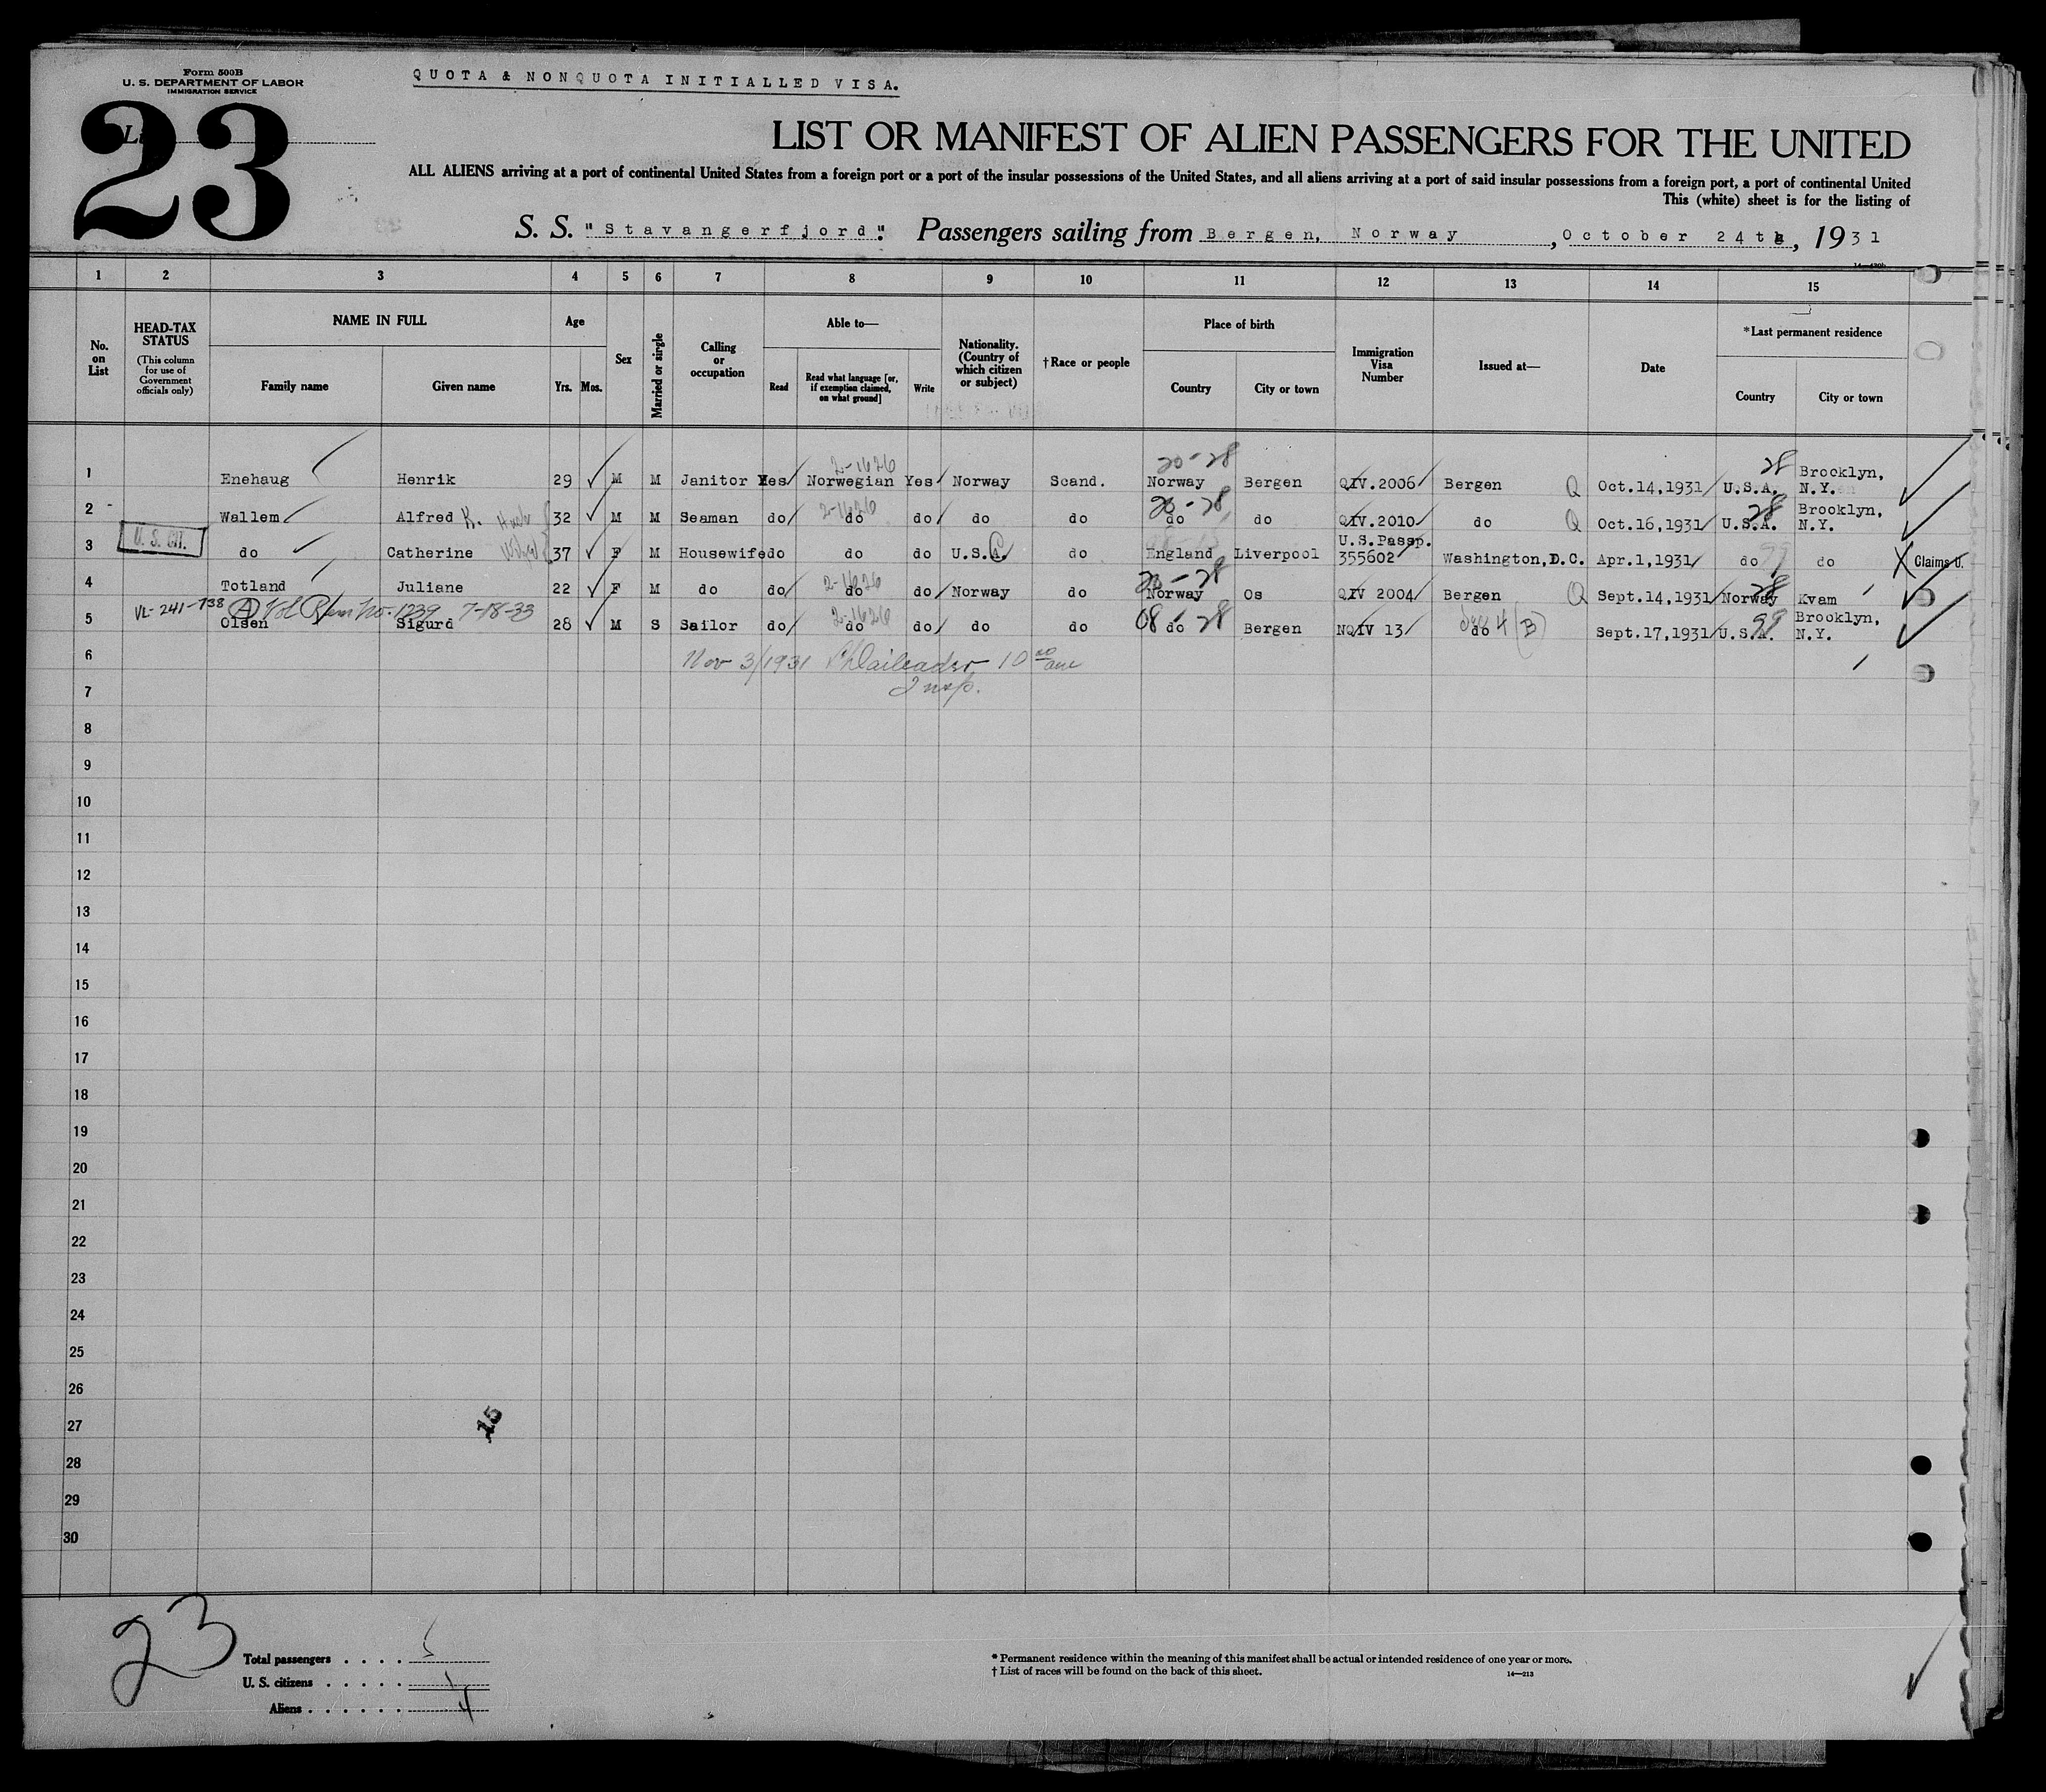 Form 500B
U. S. DEPARTMENT OF LABOR
IMMIGRATION SERVICE
QUOTA & NONQUOTA INITIALLED VISA.
23
LIST OR MANIFEST OF ALIEN PASSENGERS FOR THE UNITED
ALL ALIENS arriving at a port of continental United States from a foreign port or a port of the insular possessions of the United States, and all aliens arriving at a port of said insular possessions from a foreign port, a port of continental United
This (white) sheet is for the listing of
S. S. "Stavangerfjord". Passengers sailing from Bergen, Norway, October 24th, 1931
1 2 3 4 5 6 7 8 9 10 11 12 13 14 15
No. on List
HEAD-TAX STATUS
(This column for use of Government officials only)
NAME IN FULL
Family name Given name
Age
Yrs. Mos.
Sex
Married or single
Calling or occupation
Able to—
Read
Read what language [or, if exemption claimed, on what ground]
Write
Nationality. (Country of which citizen or subject)
†Race or people
Place of birth
Country City or town
Immigration Visa Number
Issued at—
Date
*Last permanent residence
Country City or town
2-1626 20-28 28
1 Enehaug Henrik 29 M M Janitor Yes Norwegian Yes Norway Scand. Norway Bergen QIV.2006 Bergen Q Oct.14,1931 U.S.A. Brooklyn, N.Y.
2-1626 20-28 28
2 Wallem Alfred K. 32 M M Seaman do do do do do do do QIV.2010 do Q Oct.16,1931 U.S.A. Brooklyn, N.Y.
3 U. S. CIT. do Catherine 37 F M Housewife do do do U.S.A. do England Liverpool U.S.Passp. 355602 Washington,D.C. Apr.1,1931 do 99 do X Claims U.
2-1626 20-28 28
4 Totland Juliane 22 F M do do do do Norway do Norway Os QIV 2004 Bergen Q Sept.14,1931 Norway Kvam
VL-241-738 (A) No. 1239 7-18-33
2-1626 08-28 99
5 Olsen Sigurd 28 M S Sailor do do do do do do Bergen NQIV 13 do 4 (B) Sept.17,1931 U.S.A. Brooklyn, N.Y.
6 Nov 3/1931 10
7 Insp.
8
9
10
11
12
13
14
15
16
17
18
19
20
21
22
23
24
25
26
27
15
28
29
30
23
Total passengers . . . . 5
U. S. citizens . . . . . 1
Aliens . . . . . . 4
* Permanent residence within the meaning of this manifest shall be actual or intended residence of one year or more.
† List of races will be found on the back of this sheet.
14—213